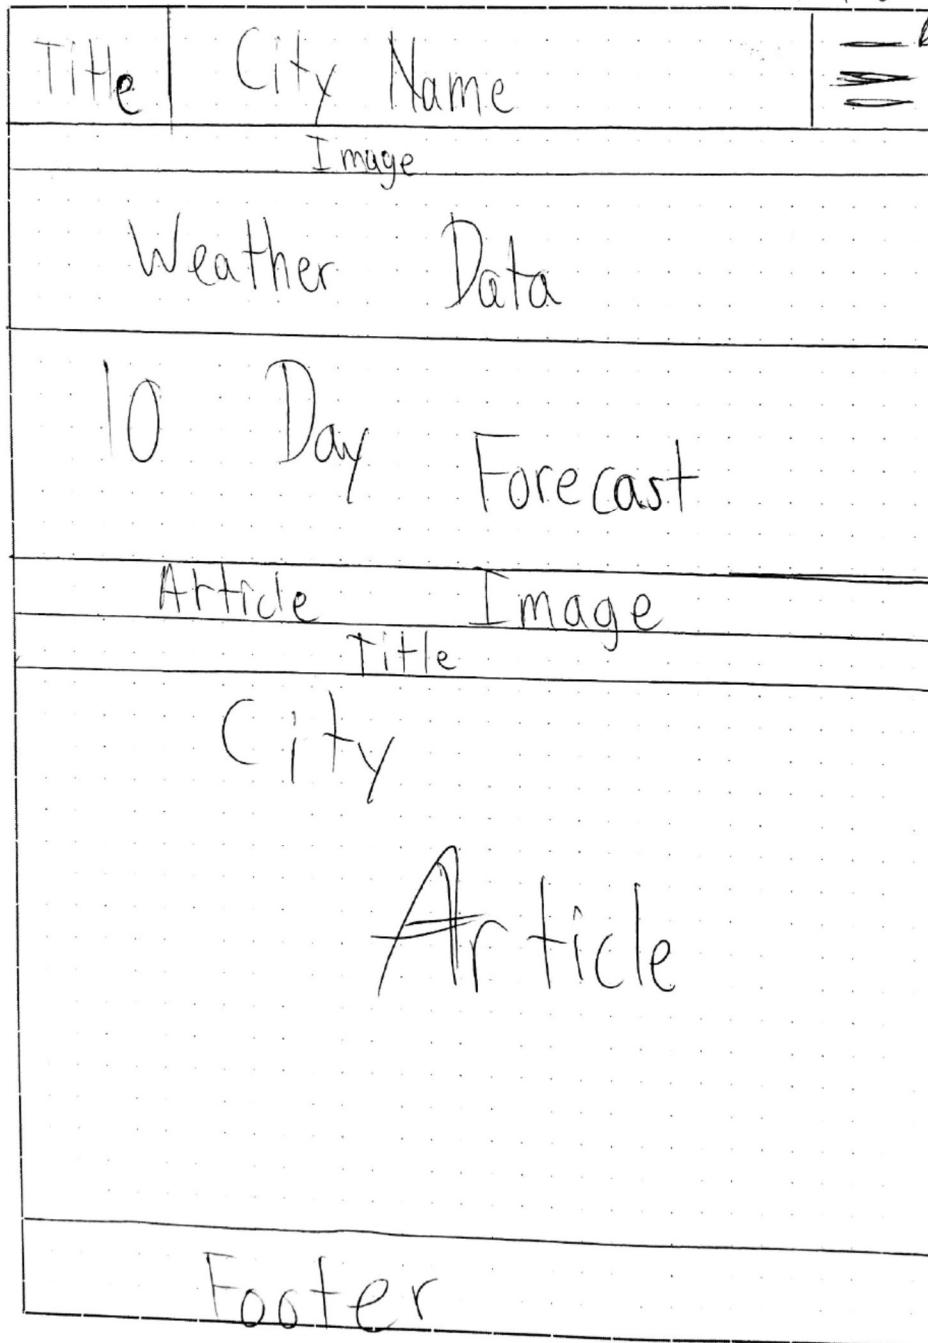 Title City Name
Image
Weather Data
10 Day Forecast
Article Image
Title
City
Article
Footer